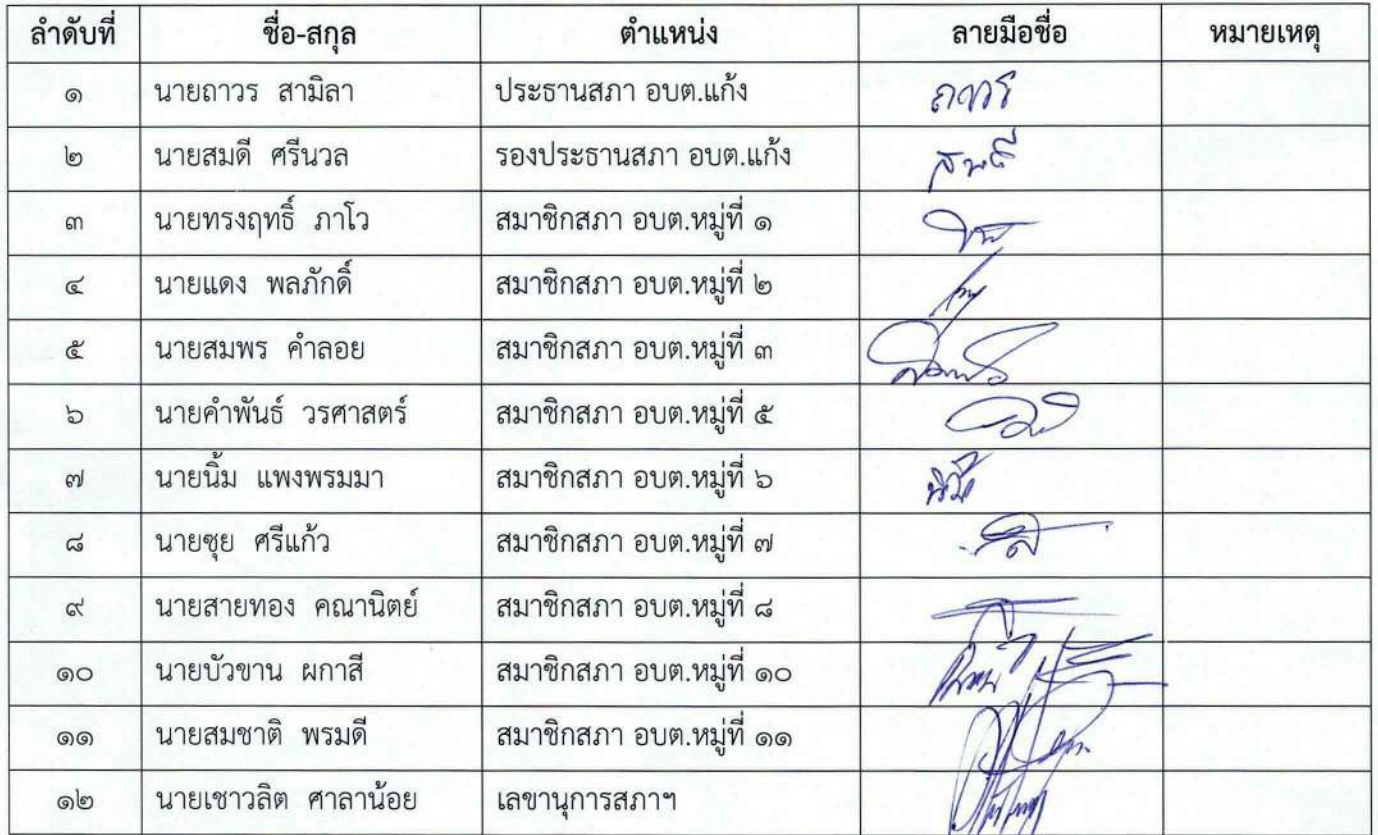 ลำดับที่ ชื่อ-สกุล ตำแหน่ง ลายมือชื่อ หมายเหตุ
๑ นายถาวร สามิลา ประธานสภา อบต.แก้ง ถาวร
๒ นายสมดี ศรีนวล รองประธานสภา อบต.แก้ง สมดี
๓ นายทรงฤทธิ์ ภาโว สมาชิกสภา อบต.หมู่ที่ ๑
๔ นายแดง พลภักดิ์ สมาชิกสภา อบต.หมู่ที่ ๒
๕ นายสมพร คำลอย สมาชิกสภา อบต.หมู่ที่ ๓
๖ นายคำพันธ์ วรศาสตร์ สมาชิกสภา อบต.หมู่ที่ ๕
๗ นายนิ้ม แพงพรมมา สมาชิกสภา อบต.หมู่ที่ ๖
๘ นายซุย ศรีแก้ว สมาชิกสภา อบต.หมู่ที่ ๗
๙ นายสายทอง คณานิตย์ สมาชิกสภา อบต.หมู่ที่ ๘
๑๐ นายบัวขาน ผกาสี สมาชิกสภา อบต.หมู่ที่ ๑๐
๑๑ นายสมชาติ พรมดี สมาชิกสภา อบต.หมู่ที่ ๑๑
๑๒ นายเชาวลิต ศาลาน้อย เลขานุการสภาฯ